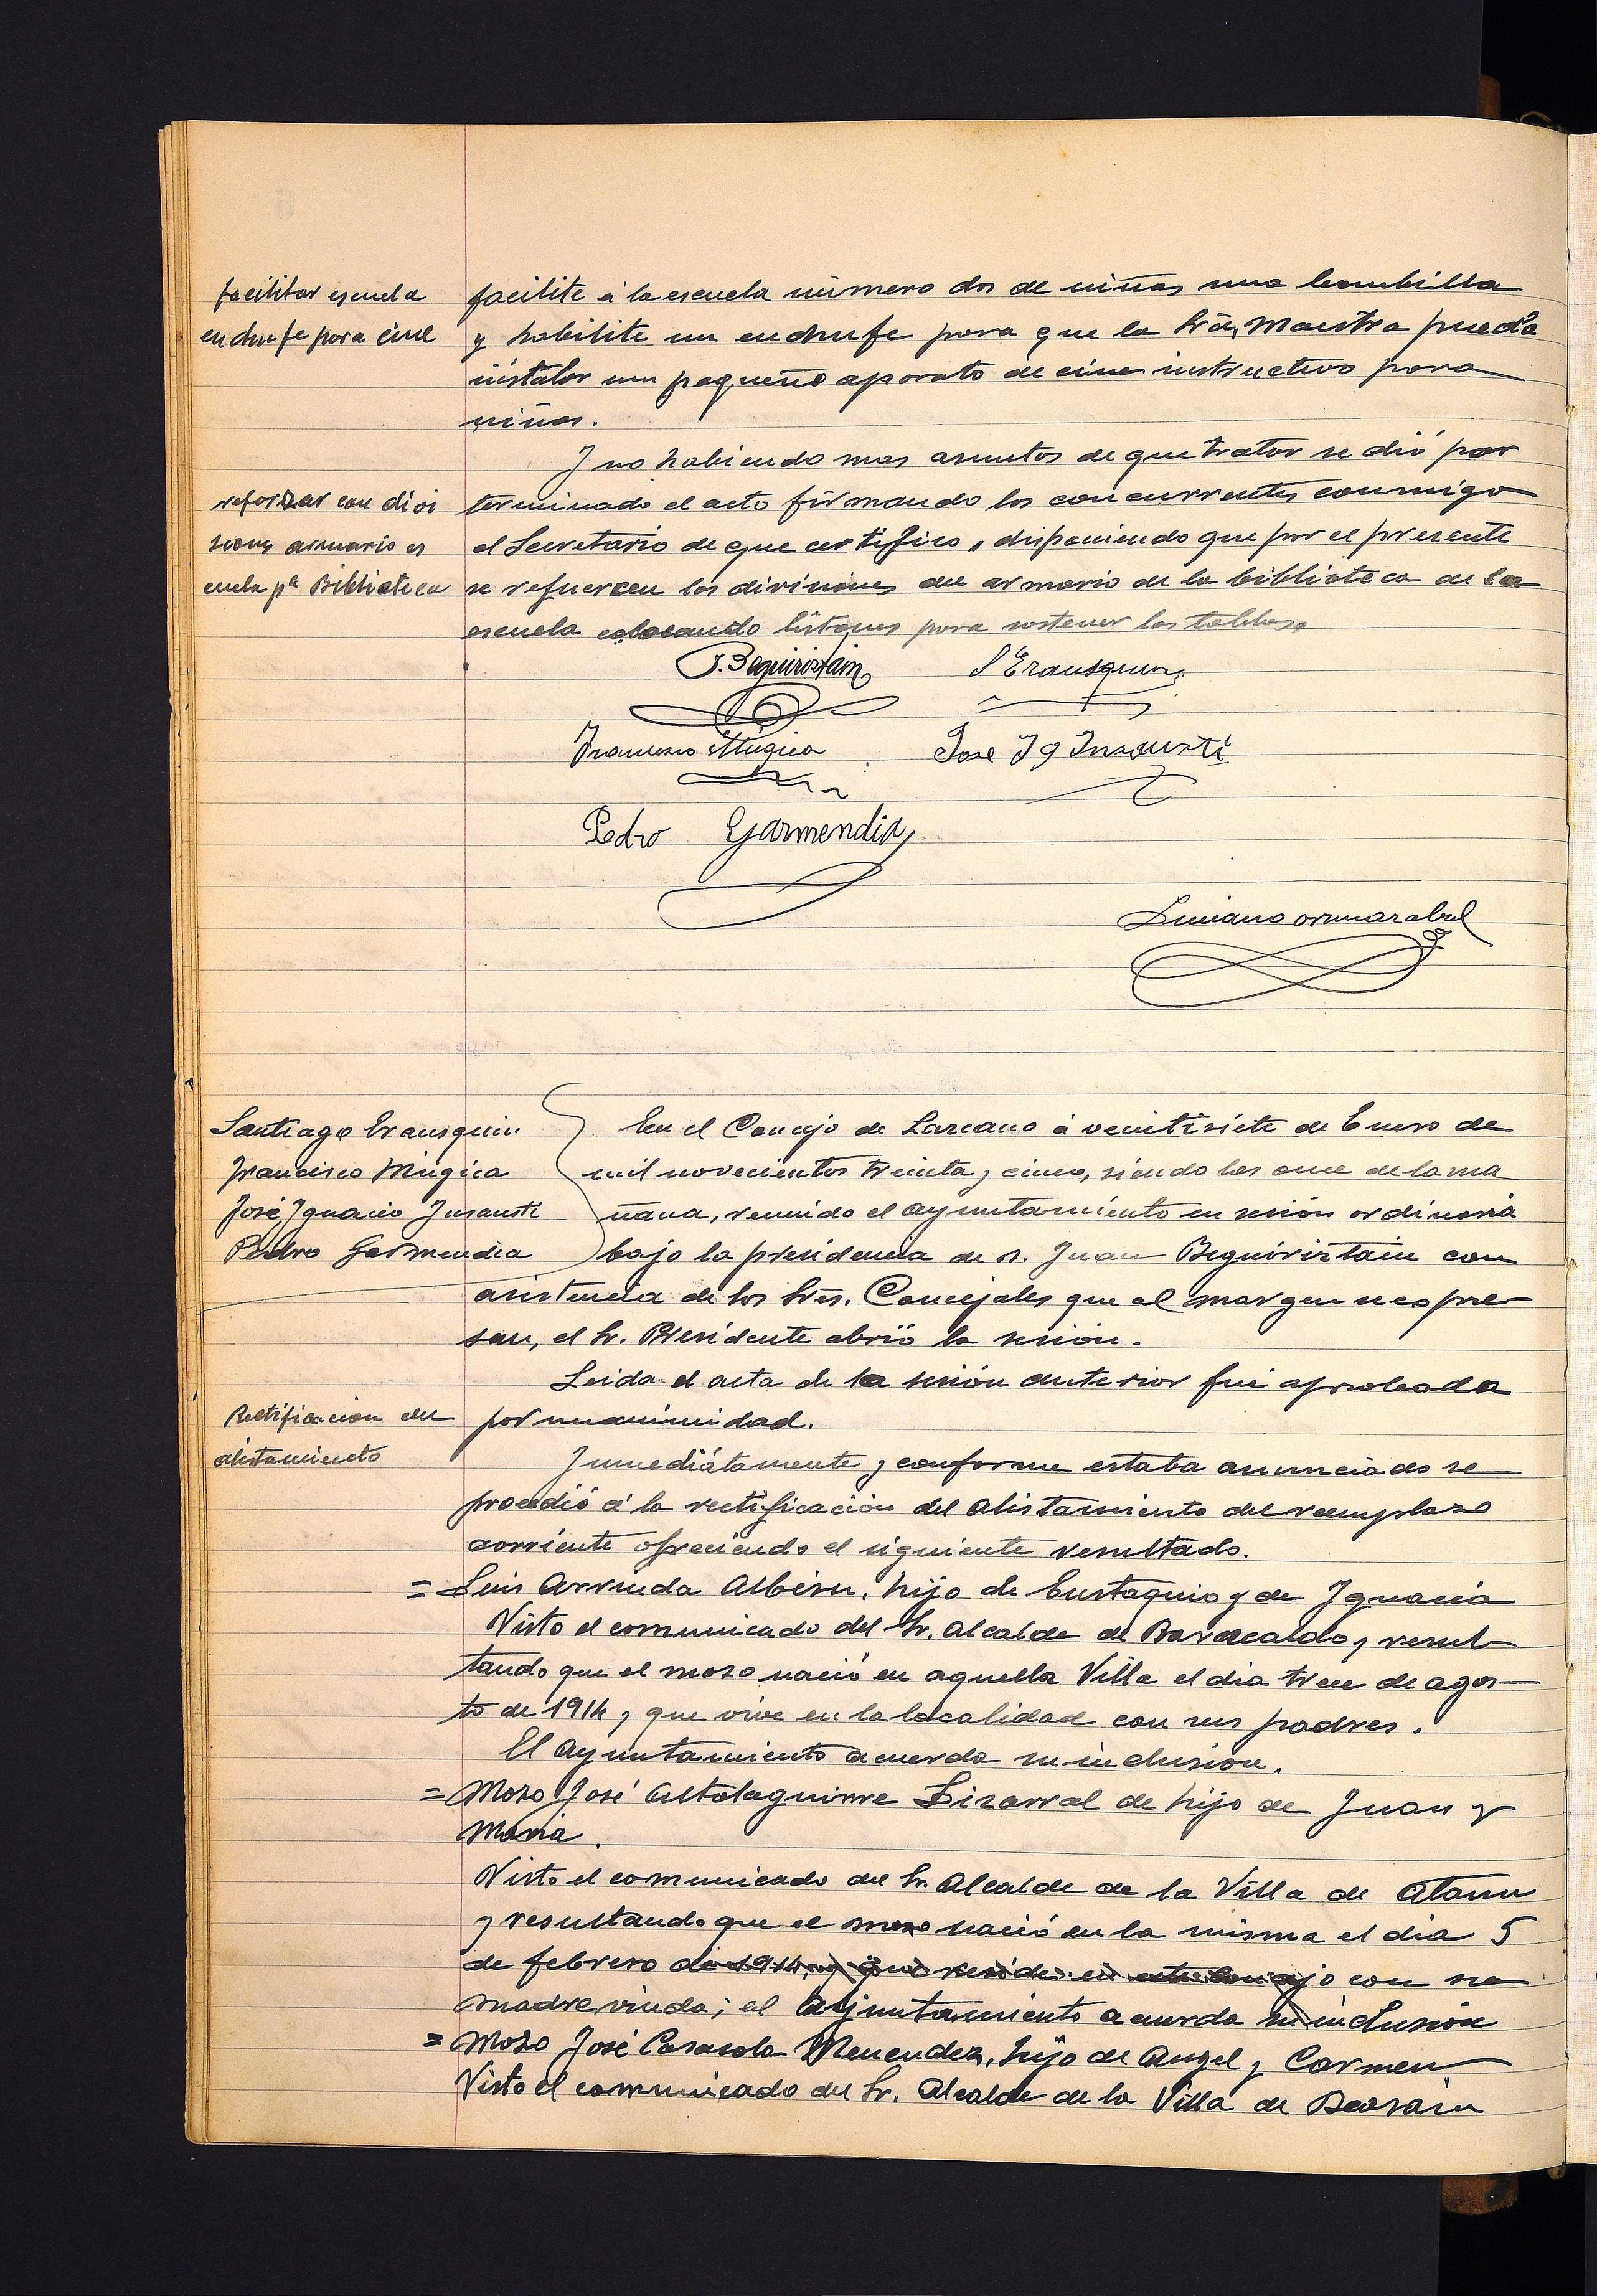 facilitar escuela
enchufe para cine
facilite á la escuela número dos de niñas una bombilla
y habilite un enchufe para que la Sra, Maestra pueda
instalar un pequeño aparato de cine instructivo para
niños.
Y no habiendo mas asuntos de que tratar se dió por
reforzar con divi
siones armario es
cuela pª Biblioteca
terminado el acto firmando los concurrentes conmigo
el Secretario de que certifico, disponiendo que por el presente
se refuercen las divisiones del armario de la biblioteca de la
escuela colocando listones para sostener las tablas.
J. Beguiristain
S Erausquin
Francisco Mugica
Jose Ig Insausti
Pedro Garmendia
Luciano
Santiago Erausquin
Francisco Múgica
José Ignacio Insausti
Pedro Garmendia
En el Concejo de Lazcano á veintisiete de Enero de
mil novecientos treinta y cinco, siendo las once de la ma
ñana, reunido el ayuntamiento en sesión ordinaria
bajo la presidencia de D. Juan Beguiristain con
asistencia de los Sres. Concejales que al margen se expre
san, el Sr. Presidente abrió la sesión.
Leida el acta de la sesión anterior fué aprobada
por unanimidad.
Rectificacion del
alistamiento
Inmediátamente y conforme estaba anunciado se
procedió á la rectificación del alistamiento del reemplazo
corriente ofreciendo el siguiente resultado.
= Luis Arruda Albisu, hijo de Eustaquio y de Ignacia
Visto el comunicado del Sr. Alcalde de Baracaldo y resul-
tando que el mozo nació en aquella Villa el dia trece de agos-
to de 1914 y que vive en la localidad con sus padres.
El Ayuntamiento acuerda su inclusión.
= Mozo José Altolaguirre Lizarralde hijo de Juan y
Maria.
Visto el comunicado del Sr. Alcalde de la Villa de Ataun
y resultando que el mozo nació en la misma el dia 5
de febrero de 1914, y que reside en este Concejo con su
madre viuda; el Ayuntamiento acuerda su inclusión
= Mozo José Casasola Menendez, hijo de Angel y Carmen
Visto el comunicado del Sr. Alcalde de la Villa de Beasain